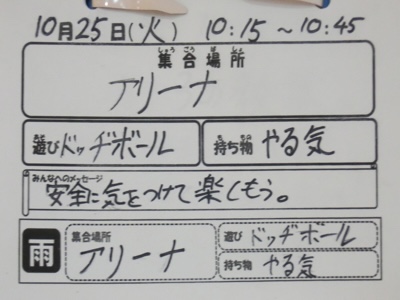 10月25日(火) 10:15~10:45
集合場所
アリーナ
遊び ドッヂボール 持ち物 やる気
みんなへのメッセージ
安全に気をつけて楽しもう。
雨 集合場所 遊び ドッヂボール
アリーナ 持ち物 やる気